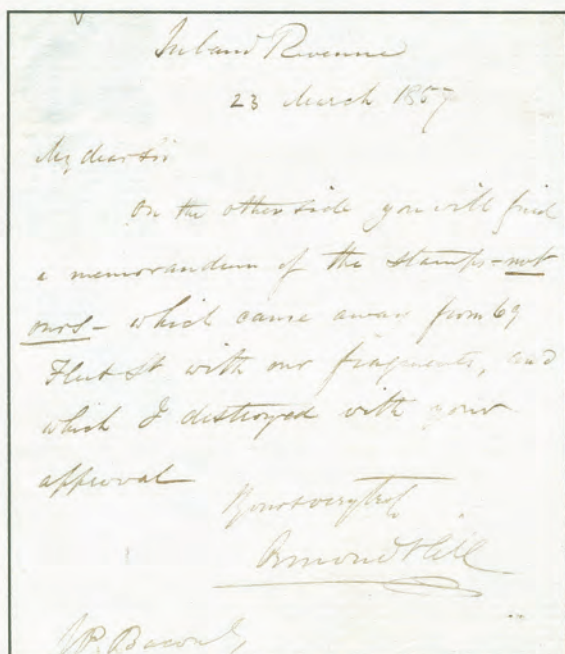 Inland Revenue
23 March 1857
My dear Sir
On the other side you will find
a memorandum of the stamps – not
ours – which came away from 69
Fleet St with our fragments, and
which I destroyed with your
approval
Yours very truly
Ormond Hill
J P. Bacon